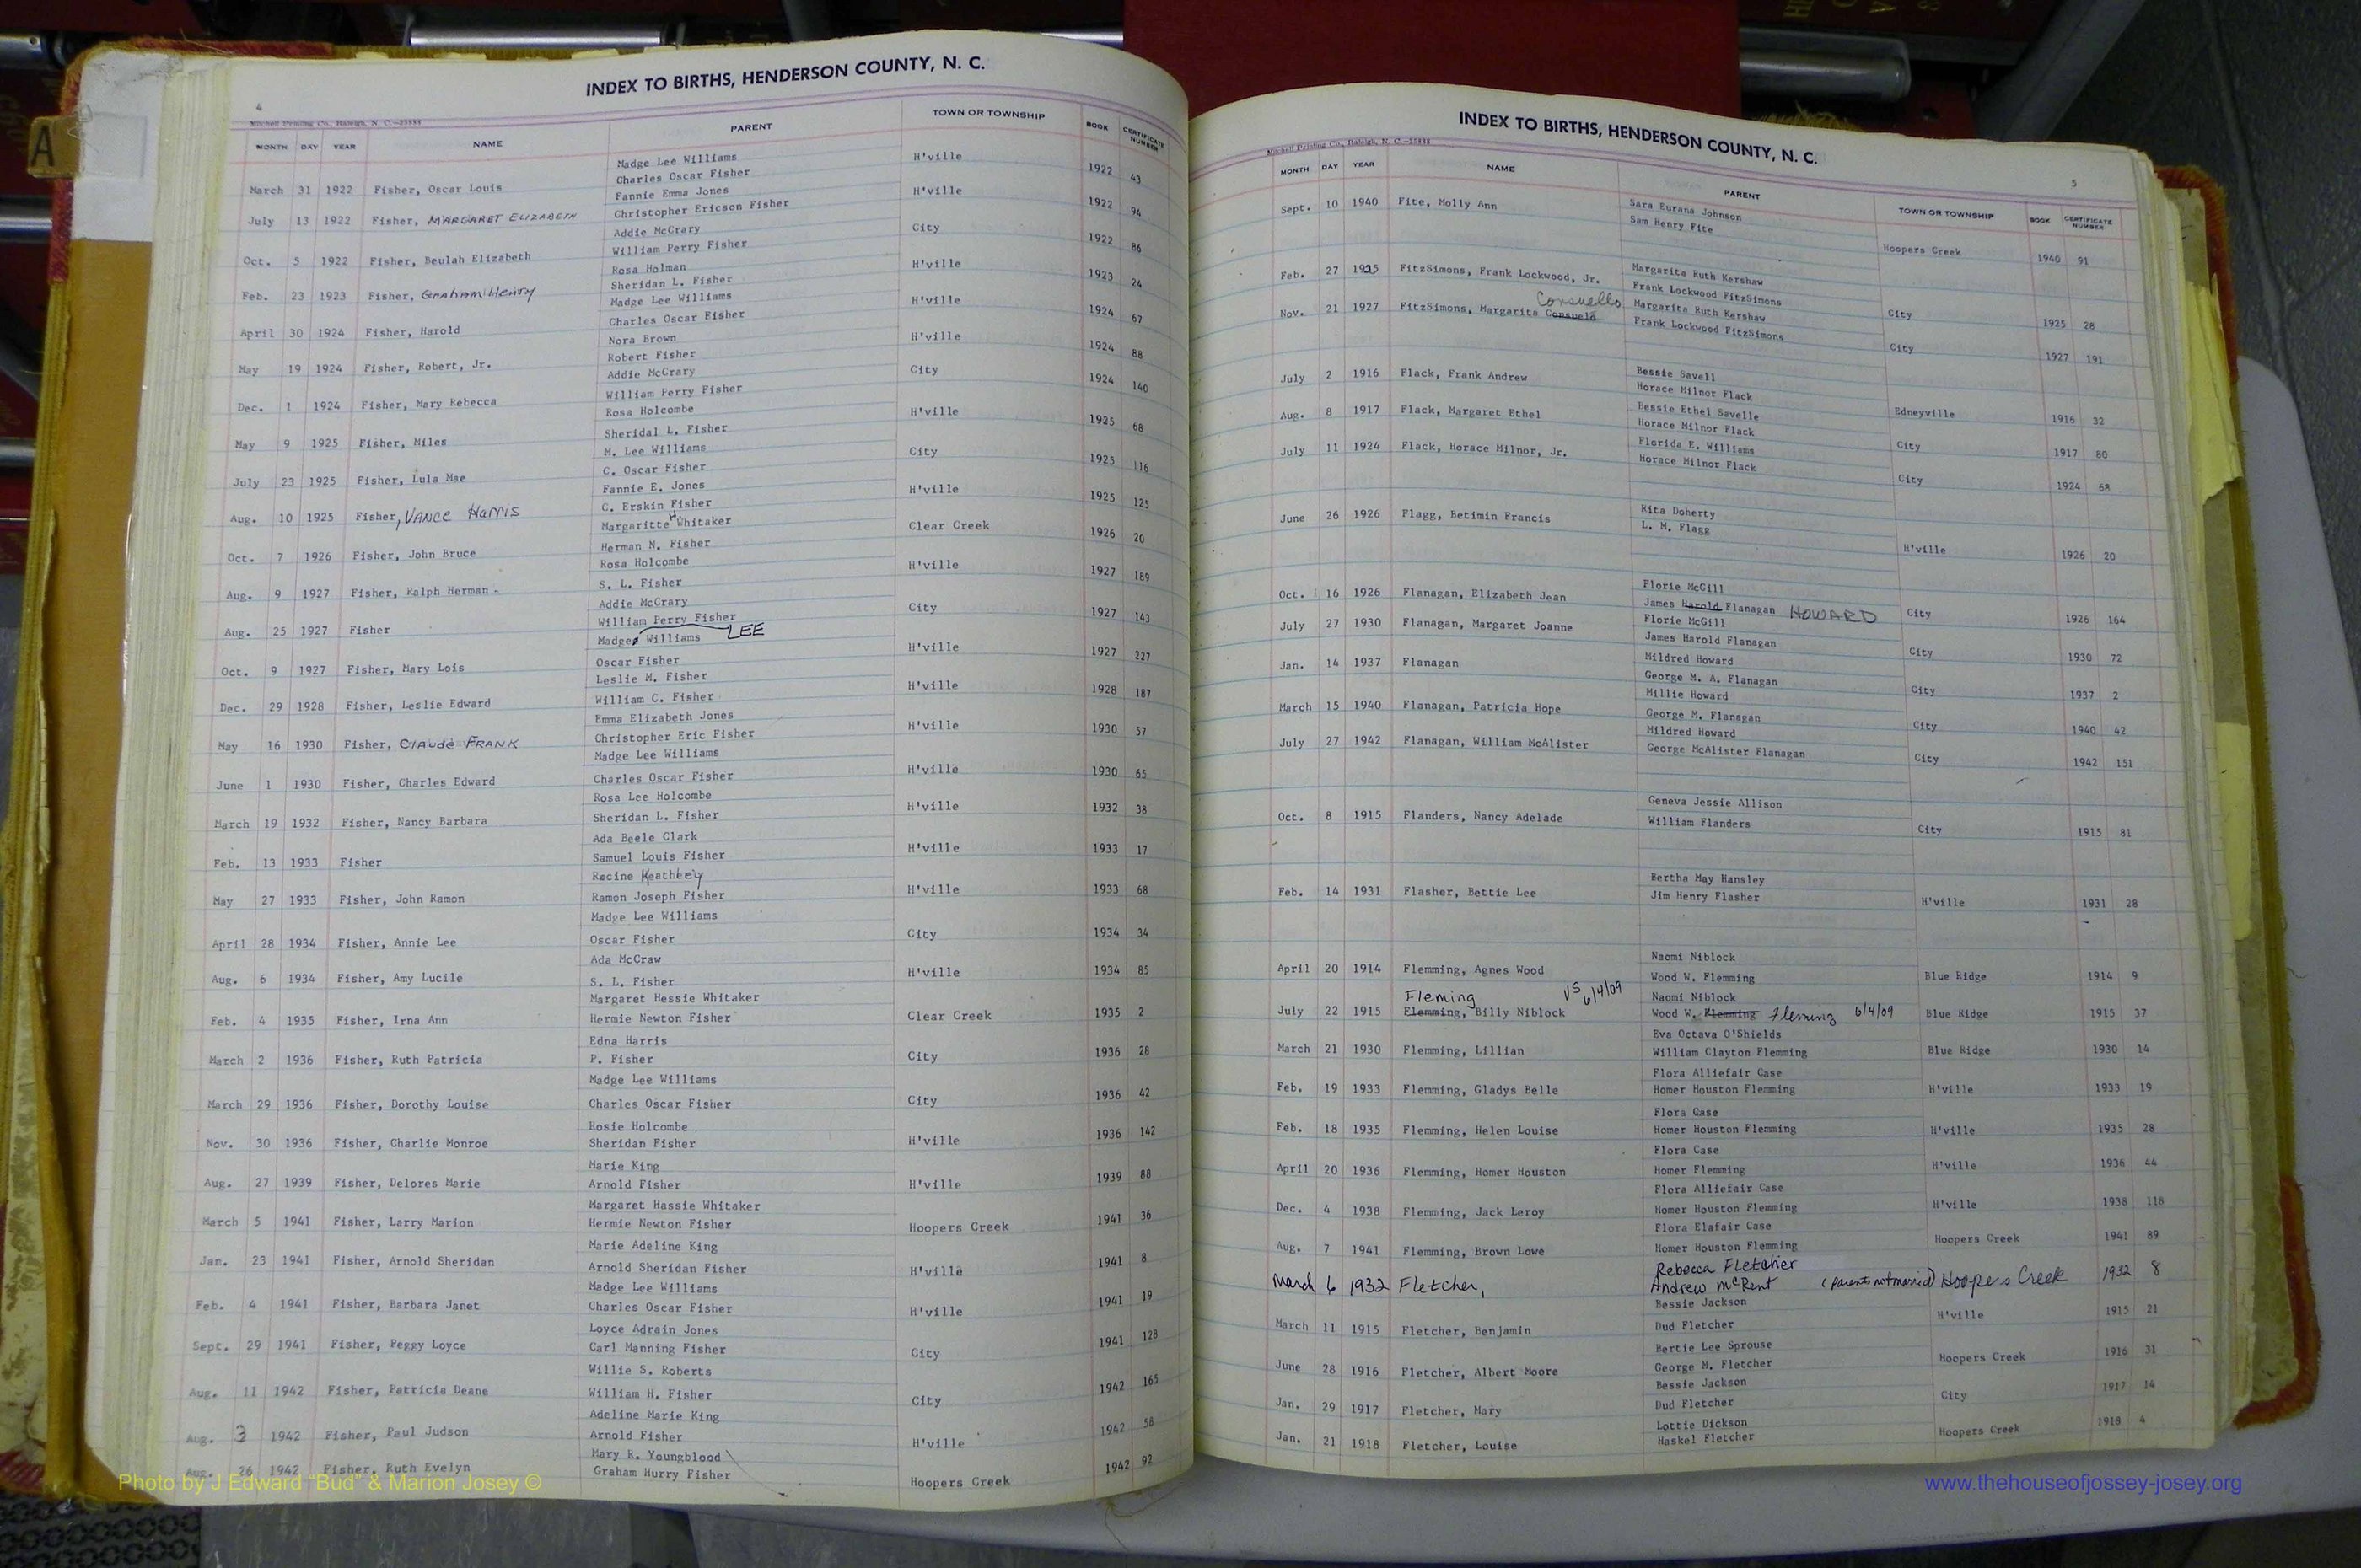 INDEX TO BIRTHS, HENDERSON COUNTY, N. C.
4
Mitchell Printing Co., Raleigh, N. C.—25888
MONTH DAY YEAR NAME PARENT TOWN OR TOWNSHIP BOOK CERTIFICATE NUMBER
Madge Lee Williams
March 31 1922 Fisher, Oscar Louis Charles Oscar Fisher H'ville 1922 43
Fannie Emma Jones
July 13 1922 Fisher, MARGARET ELIZABETH Christopher Ericson Fisher H'ville 1922 94
Addie McCrary
Oct. 5 1922 Fisher, Beulah Elizabeth William Perry Fisher City 1922 86
Rosa Holman
Feb. 23 1923 Fisher, Graham Henry Sheridan L. Fisher H'ville 1923 24
Madge Lee Williams
April 30 1924 Fisher, Harold Charles Oscar Fisher H'ville 1924 67
Nora Brown
May 19 1924 Fisher, Robert, Jr. Robert Fisher H'ville 1924 88
Addie McCrary
Dec. 1 1924 Fisher, Mary Rebecca William Perry Fisher City 1924 140
Rosa Holcombe
May 9 1925 Fisher, Miles Sheridal L. Fisher H'ville 1925 68
M. Lee Williams
July 23 1925 Fisher, Lula Mae C. Oscar Fisher City 1925 116
Fannie E. Jones
Aug. 10 1925 Fisher, VANCE Harris C. Erskin Fisher H'ville 1925 125
Margaritte H. Whitaker
Oct. 7 1926 Fisher, John Bruce Herman N. Fisher Clear Creek 1926 20
Rosa Holcombe
Aug. 9 1927 Fisher, Ralph Herman S. L. Fisher H'ville 1927 189
Addie McCrary
Aug. 25 1927 Fisher William Perry Fisher City 1927 143
Madge Williams LEE
Oct. 9 1927 Fisher, Mary Lois Oscar Fisher H'ville 1927 227
Leslie M. Fisher
Dec. 29 1928 Fisher, Leslie Edward William C. Fisher H'ville 1928 187
Emma Elizabeth Jones
May 16 1930 Fisher, Claude FRANK Christopher Eric Fisher H'ville 1930 57
Madge Lee Williams
June 1 1930 Fisher, Charles Edward Charles Oscar Fisher H'ville 1930 65
Rosa Lee Holcombe
March 19 1932 Fisher, Nancy Barbara Sheridan L. Fisher H'ville 1932 38
Ada Beele Clark
Feb. 13 1933 Fisher Samuel Louis Fisher H'ville 1933 17
Racine Keathley
May 27 1933 Fisher, John Ramon Ramon Joseph Fisher H'ville 1933 68
Madge Lee Williams
April 28 1934 Fisher, Annie Lee Oscar Fisher City 1934 34
Ada McCraw
Aug. 6 1934 Fisher, Amy Lucile S. L. Fisher H'ville 1934 85
Margaret Hessie Whitaker
Feb. 4 1935 Fisher, Irna Ann Hermie Newton Fisher Clear Creek 1935 2
Edna Harris
March 2 1936 Fisher, Ruth Patricia P. Fisher City 1936 28
Madge Lee Williams
March 29 1936 Fisher, Dorothy Louise Charles Oscar Fisher City 1936 42
Rosie Holcombe
Nov. 30 1936 Fisher, Charlie Monroe Sheridan Fisher H'ville 1936 142
Marie King
Aug. 27 1939 Fisher, Delores Marie Arnold Fisher H'ville 1939 88
Margaret Hassie Whitaker
March 5 1941 Fisher, Larry Marion Hermie Newton Fisher Hoopers Creek 1941 36
Marie Adeline King
Jan. 23 1941 Fisher, Arnold Sheridan Arnold Sheridan Fisher H'ville 1941 8
Madge Lee Williams
Feb. 4 1941 Fisher, Barbara Janet Charles Oscar Fisher H'ville 1941 19
Loyce Adrain Jones
Sept. 29 1941 Fisher, Peggy Loyce Carl Manning Fisher City 1941 128
Willie S. Roberts
Aug. 11 1942 Fisher, Patricia Deane William H. Fisher City 1942 165
Adeline Marie King
Aug. 3 1942 Fisher, Paul Judson Arnold Fisher H'ville 1942 58
Mary R. Youngblood
Aug. 26 1942 Fisher, Ruth Evelyn Graham Hurry Fisher Hoopers Creek 1942 92
INDEX TO BIRTHS, HENDERSON COUNTY, N. C.
5
Mitchell Printing Co., Raleigh, N. C.—25888
MONTH DAY YEAR NAME PARENT TOWN OR TOWNSHIP BOOK CERTIFICATE NUMBER
Sept. 10 1940 Fite, Molly Ann Sara Eurana Johnson
Sam Henry Fite Hoopers Creek 1940 91
Feb. 27 1925 FitzSimons, Frank Lockwood, Jr. Margarita Ruth Kershaw
Frank Lockwood FitzSimons City 1925 28
Consuello
Nov. 21 1927 FitzSimons, Margarita Consuela Margarita Ruth Kershaw
Frank Lockwood FitzSimons City 1927 191
July 2 1916 Flack, Frank Andrew Bessie Savell
Horace Milnor Flack Edneyville 1916 32
Aug. 8 1917 Flack, Margaret Ethel Bessie Ethel Savelle
Horace Milnor Flack City 1917 80
July 11 1924 Flack, Horace Milnor, Jr. Florida E. Williams
Horace Milnor Flack City 1924 68
June 26 1926 Flagg, Betimin Francis Rita Doherty
L. M. Flagg H'ville 1926 20
Oct. 16 1926 Flanagan, Elizabeth Jean Florie McGill
James Harold Flanagan HOWARD City 1926 164
July 27 1930 Flanagan, Margaret Joanne Florie McGill
James Harold Flanagan City 1930 72
Jan. 14 1937 Flanagan Mildred Howard
George M. A. Flanagan City 1937 2
March 15 1940 Flanagan, Patricia Hope Millie Howard
George M. Flanagan City 1940 42
July 27 1942 Flanagan, William McAlister Mildred Howard
George McAlister Flanagan City 1942 151
Oct. 8 1915 Flanders, Nancy Adelade Geneva Jessie Allison
William Flanders City 1915 81
Feb. 14 1931 Flasher, Bettie Lee Bertha May Hansley
Jim Henry Flasher H'ville 1931 28
Naomi Niblock
April 20 1914 Flemming, Agnes Wood Wood W. Flemming Blue Ridge 1914 9
Fleming VS 6/4/09 Naomi Niblock
July 22 1915 Flemming, Billy Niblock Wood W. Flemming Fleming 6/4/09 Blue Ridge 1915 37
Eva Octava O'Shields
March 21 1930 Flemming, Lillian William Clayton Flemming Blue Ridge 1930 14
Flora Alliefair Case
Feb. 19 1933 Flemming, Gladys Belle Homer Houston Flemming H'ville 1933 19
Flora Case
Feb. 18 1935 Flemming, Helen Louise Homer Houston Flemming H'ville 1935 28
Flora Case
April 20 1936 Flemming, Homer Houston Homer Flemming H'ville 1936 44
Flora Alliefair Case
Dec. 4 1938 Flemming, Jack Leroy Homer Houston Flemming H'ville 1938 118
Flora Elafair Case
Aug. 7 1941 Flemming, Brown Lowe Homer Houston Flemming Hoopers Creek 1941 89
Rebecca Fletcher
March 6 1932 Fletcher, Andrew McRent (parents not married) Hoopers Creek 1932 8
Bessie Jackson
March 11 1915 Fletcher, Benjamin Dud Fletcher H'ville 1915 21
Bertie Lee Sprouse
June 28 1916 Fletcher, Albert Moore George M. Fletcher Hoopers Creek 1916 31
Bessie Jackson
Jan. 29 1917 Fletcher, Mary Dud Fletcher City 1917 14
Lottie Dickson
Jan. 21 1918 Fletcher, Louise Haskel Fletcher Hoopers Creek 1918 4
A
Photo by J Edward "Bud" & Marion Josey ©
www.thehouseofjossey-josey.org